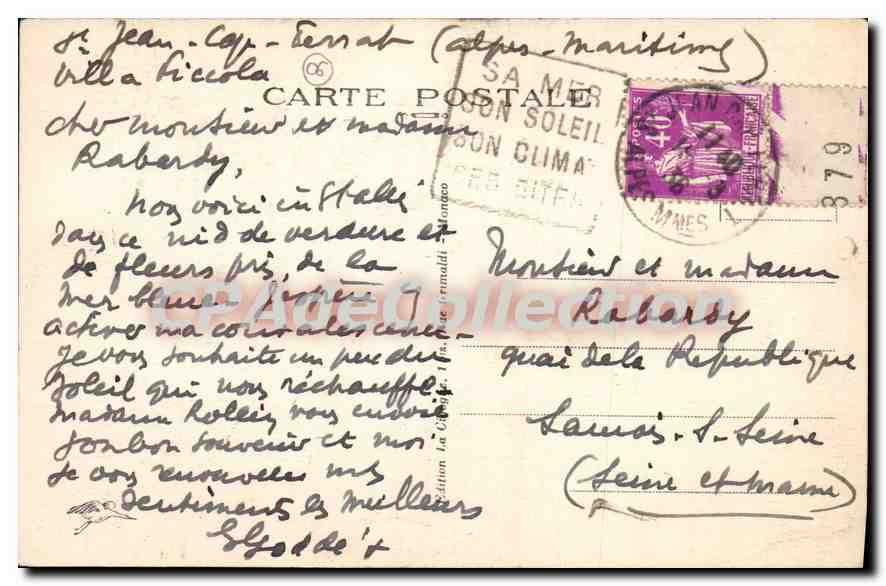 St Jean-Cap-Ferrat (Alpes-Maritimes)
Villa Piccola
06
CARTE POSTALE
Cher monsieur et madame
Rabardy,
Nous voici installés
dans ce nid de verdure et
de fleurs près de la
mer bleue j'espère y
achever ma convalescence-
Je vous souhaite un peu du
soleil qui nous réchauffe.
madame Rollin vous envoie
son bon souvenir et moi
je vous renouvelle mes
sentiments les meilleurs
SA MER
SON SOLEIL
SON CLIMAT
SES SITES
POSTES
40
MMES
379
Edition La Cigogne, Rue Grimaldi - Monaco
Monsieur et madame
Rabardy
quai de la Republique
Samois-S-Seine
(Seine et Marne)
CPADeCollection